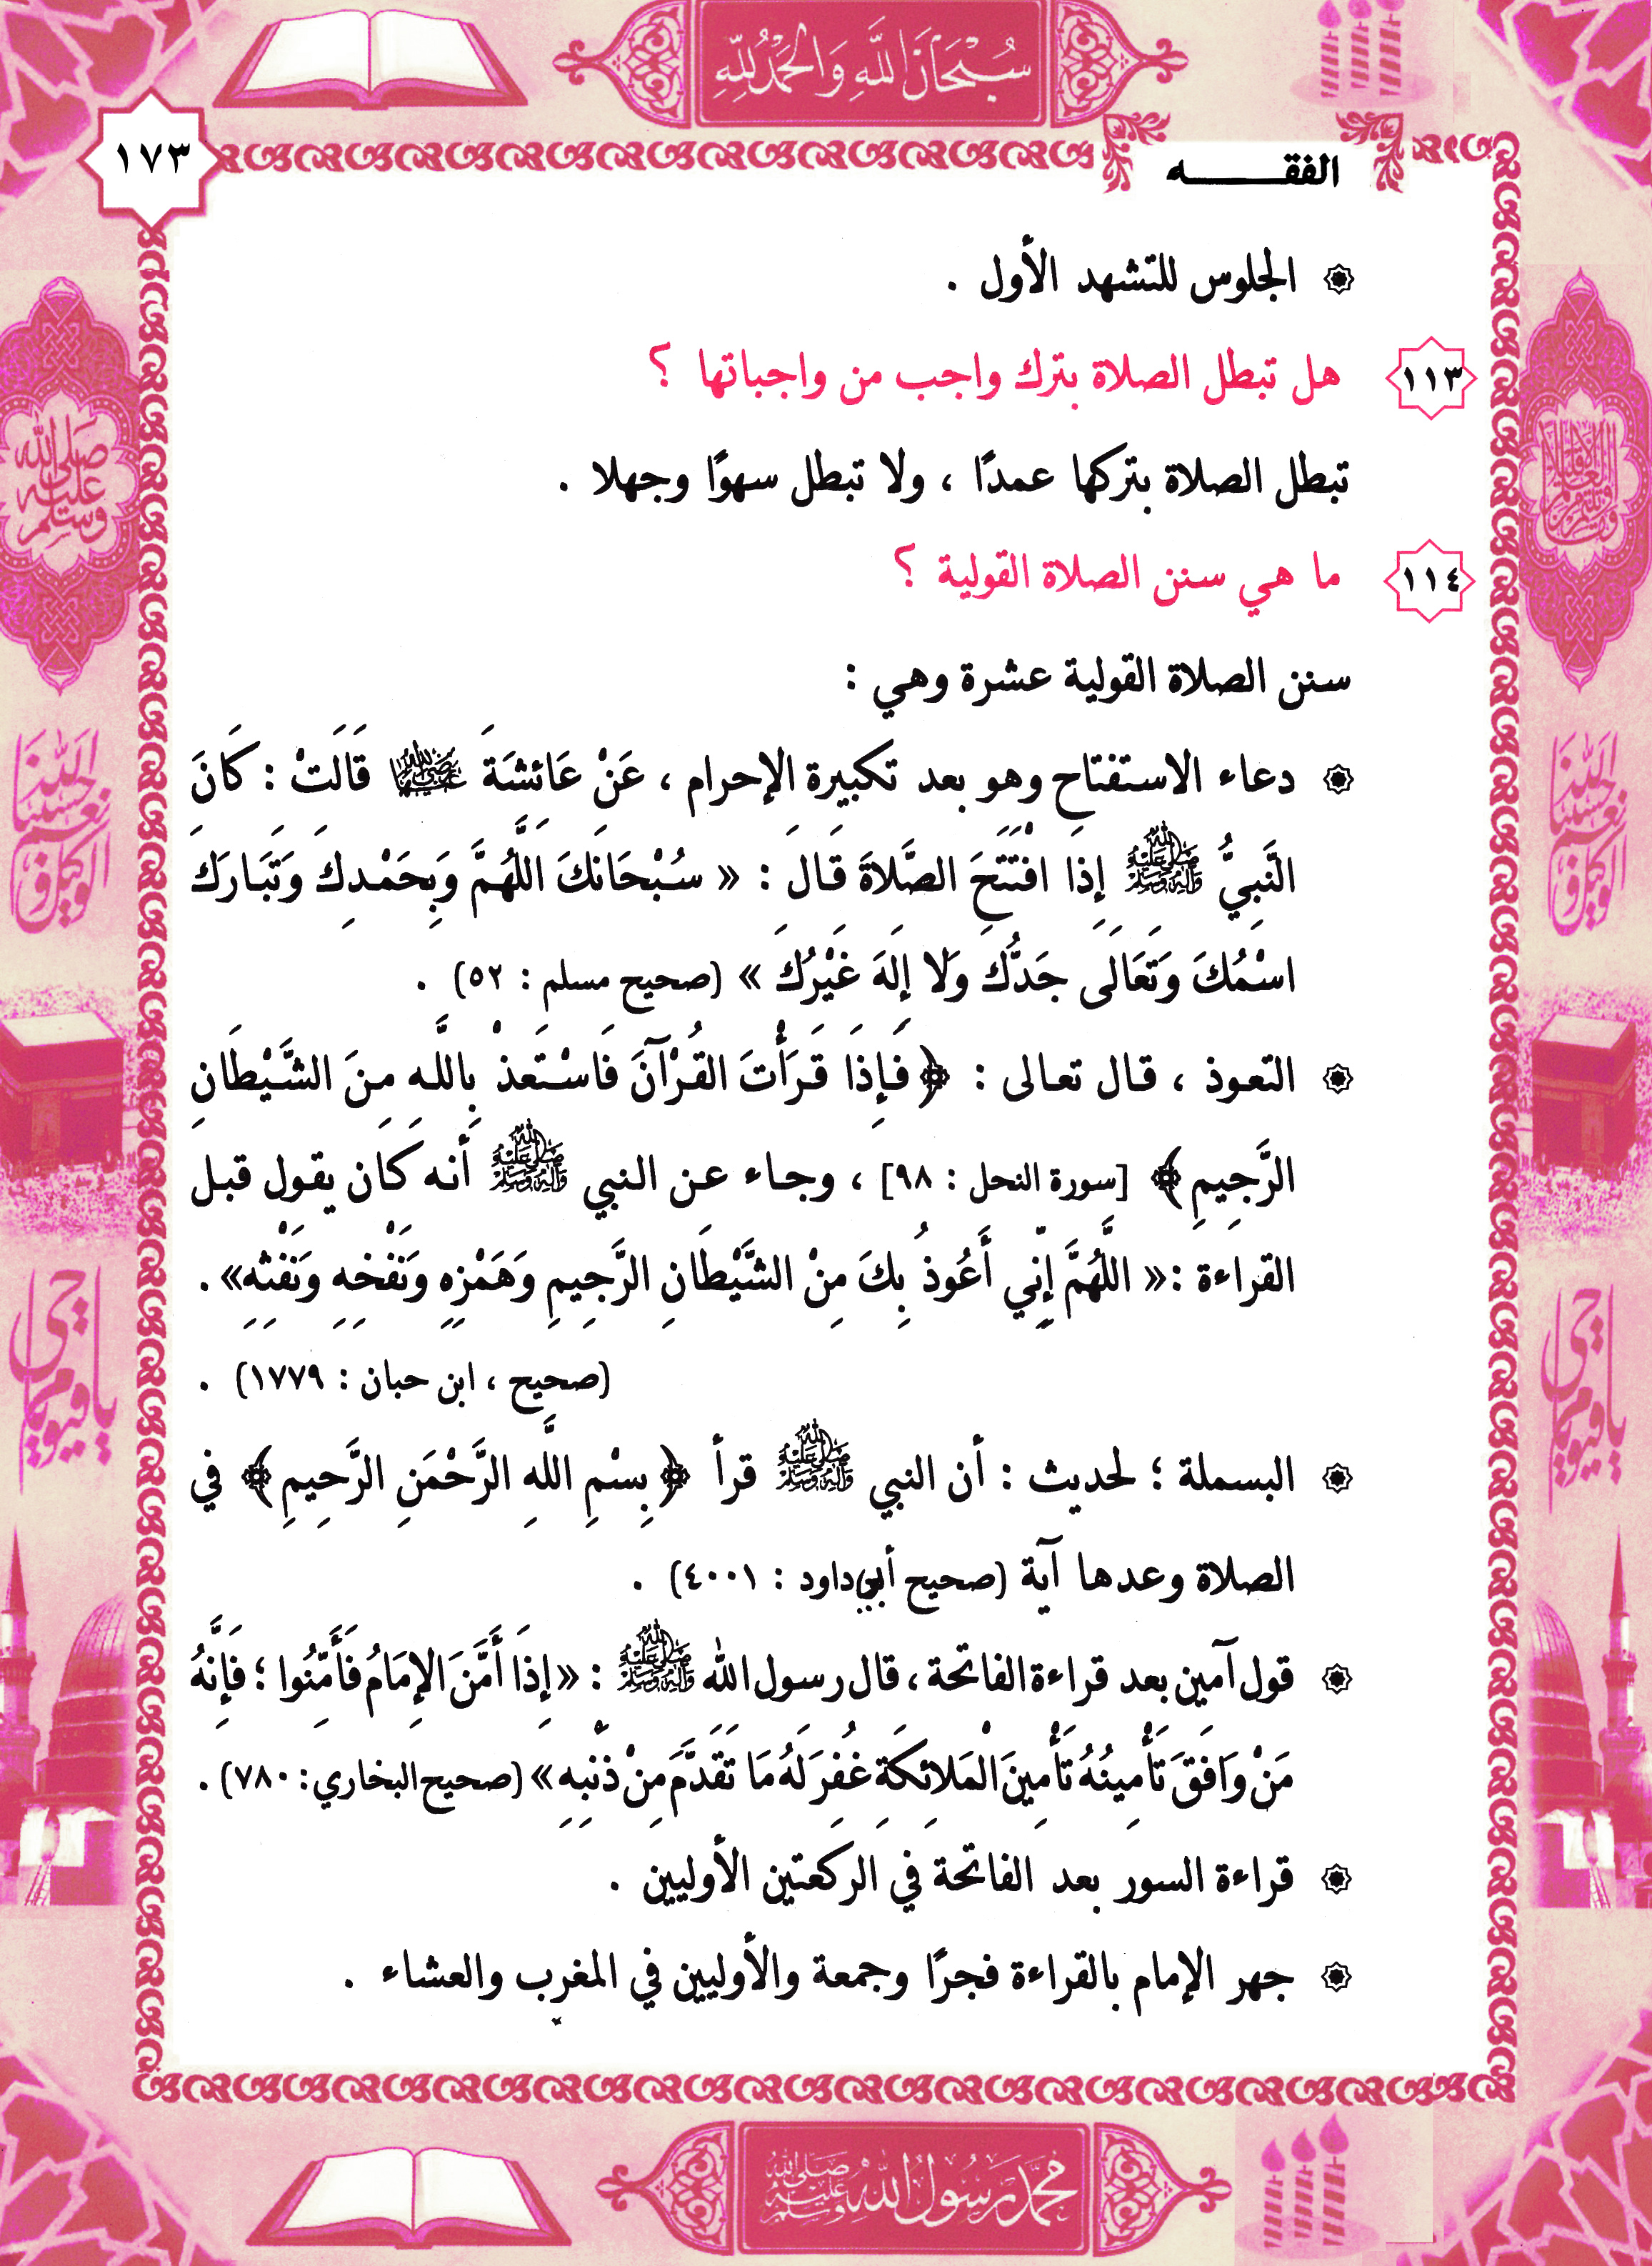 سُبْحَانَ اللَّهِ وَالحَمْدُ لِلَّهِ
١٧٣
الفقـــــه
الجلوس للتشهد الأول .
١١٣ هل تبطل الصلاة بترك واجب من واجباتها ؟
تبطل الصلاة بتركها عمدًا ، ولا تبطل سهوًا وجهلا .
١١٤ ما هي سنن الصلاة القولية ؟
سنن الصلاة القولية عشرة وهي :
دعاء الاستفتاح وهو بعد تكبيرة الإحرام ، عَنْ عَائِشَةَ رضي الله عنها قَالَتْ : كَانَ
النَّبِيُّ ﷺ إِذَا افْتَتَحَ الصَّلاةَ قَالَ : « سُبْحَانَكَ اللَّهُمَّ وَبِحَمْدِكَ وَتَبَارَكَ
اسْمُكَ وَتَعَالَى جَدُّكَ وَلا إِلَهَ غَيْرُكَ » (صحيح مسلم : ٥٢) .
التعوذ ، قال تعالى : ﴿فَإِذَا قَرَأْتَ القُرْآنَ فَاسْتَعِذْ بِاللَّهِ مِنَ الشَّيْطَانِ
الرَّجِيمِ﴾ [سورة النحل : ٩٨] ، وجاء عن النبي ﷺ أنه كان يقول قبل
القراءة :« اللَّهُمَّ إِنِّي أَعُوذُ بِكَ مِنْ الشَّيْطَانِ الرَّجِيمِ وَهَمْزِهِ وَنَفْخِهِ وَنَفْثِهِ» .
(صحيح ، ابن حبان : ١٧٧٩) .
البسملة ؛ لحديث : أن النبي ﷺ قرأ ﴿بِسْمِ اللَّهِ الرَّحْمَنِ الرَّحِيمِ﴾ في
الصلاة وعدها آية (صحيح أبي داود : ٤٠٠١) .
قول آمين بعد قراءة الفاتحة ، قال رسول الله ﷺ : «إِذَا أَمَّنَ الإِمَامُ فَأَمِّنُوا ؛ فَإِنَّهُ
مَنْ وَافَقَ تَأْمِينُهُ تَأْمِينَ الْمَلائِكَةِ غُفِرَ لَهُ مَا تَقَدَّمَ مِنْ ذَنْبِهِ» (صحيح البخاري : ٧٨٠) .
قراءة السور بعد الفاتحة في الركعتين الأوليين .
جهر الإمام بالقراءة فجرًا وجمعة والأوليين في المغرب والعشاء .
محمد رسول الله صلى الله عليه وسلم
صلى الله عليه وسلم
حسبنا الله ونعم الوكيل
حسبنا الله ونعم الوكيل
يا حي يا قيوم
يا حي يا قيوم